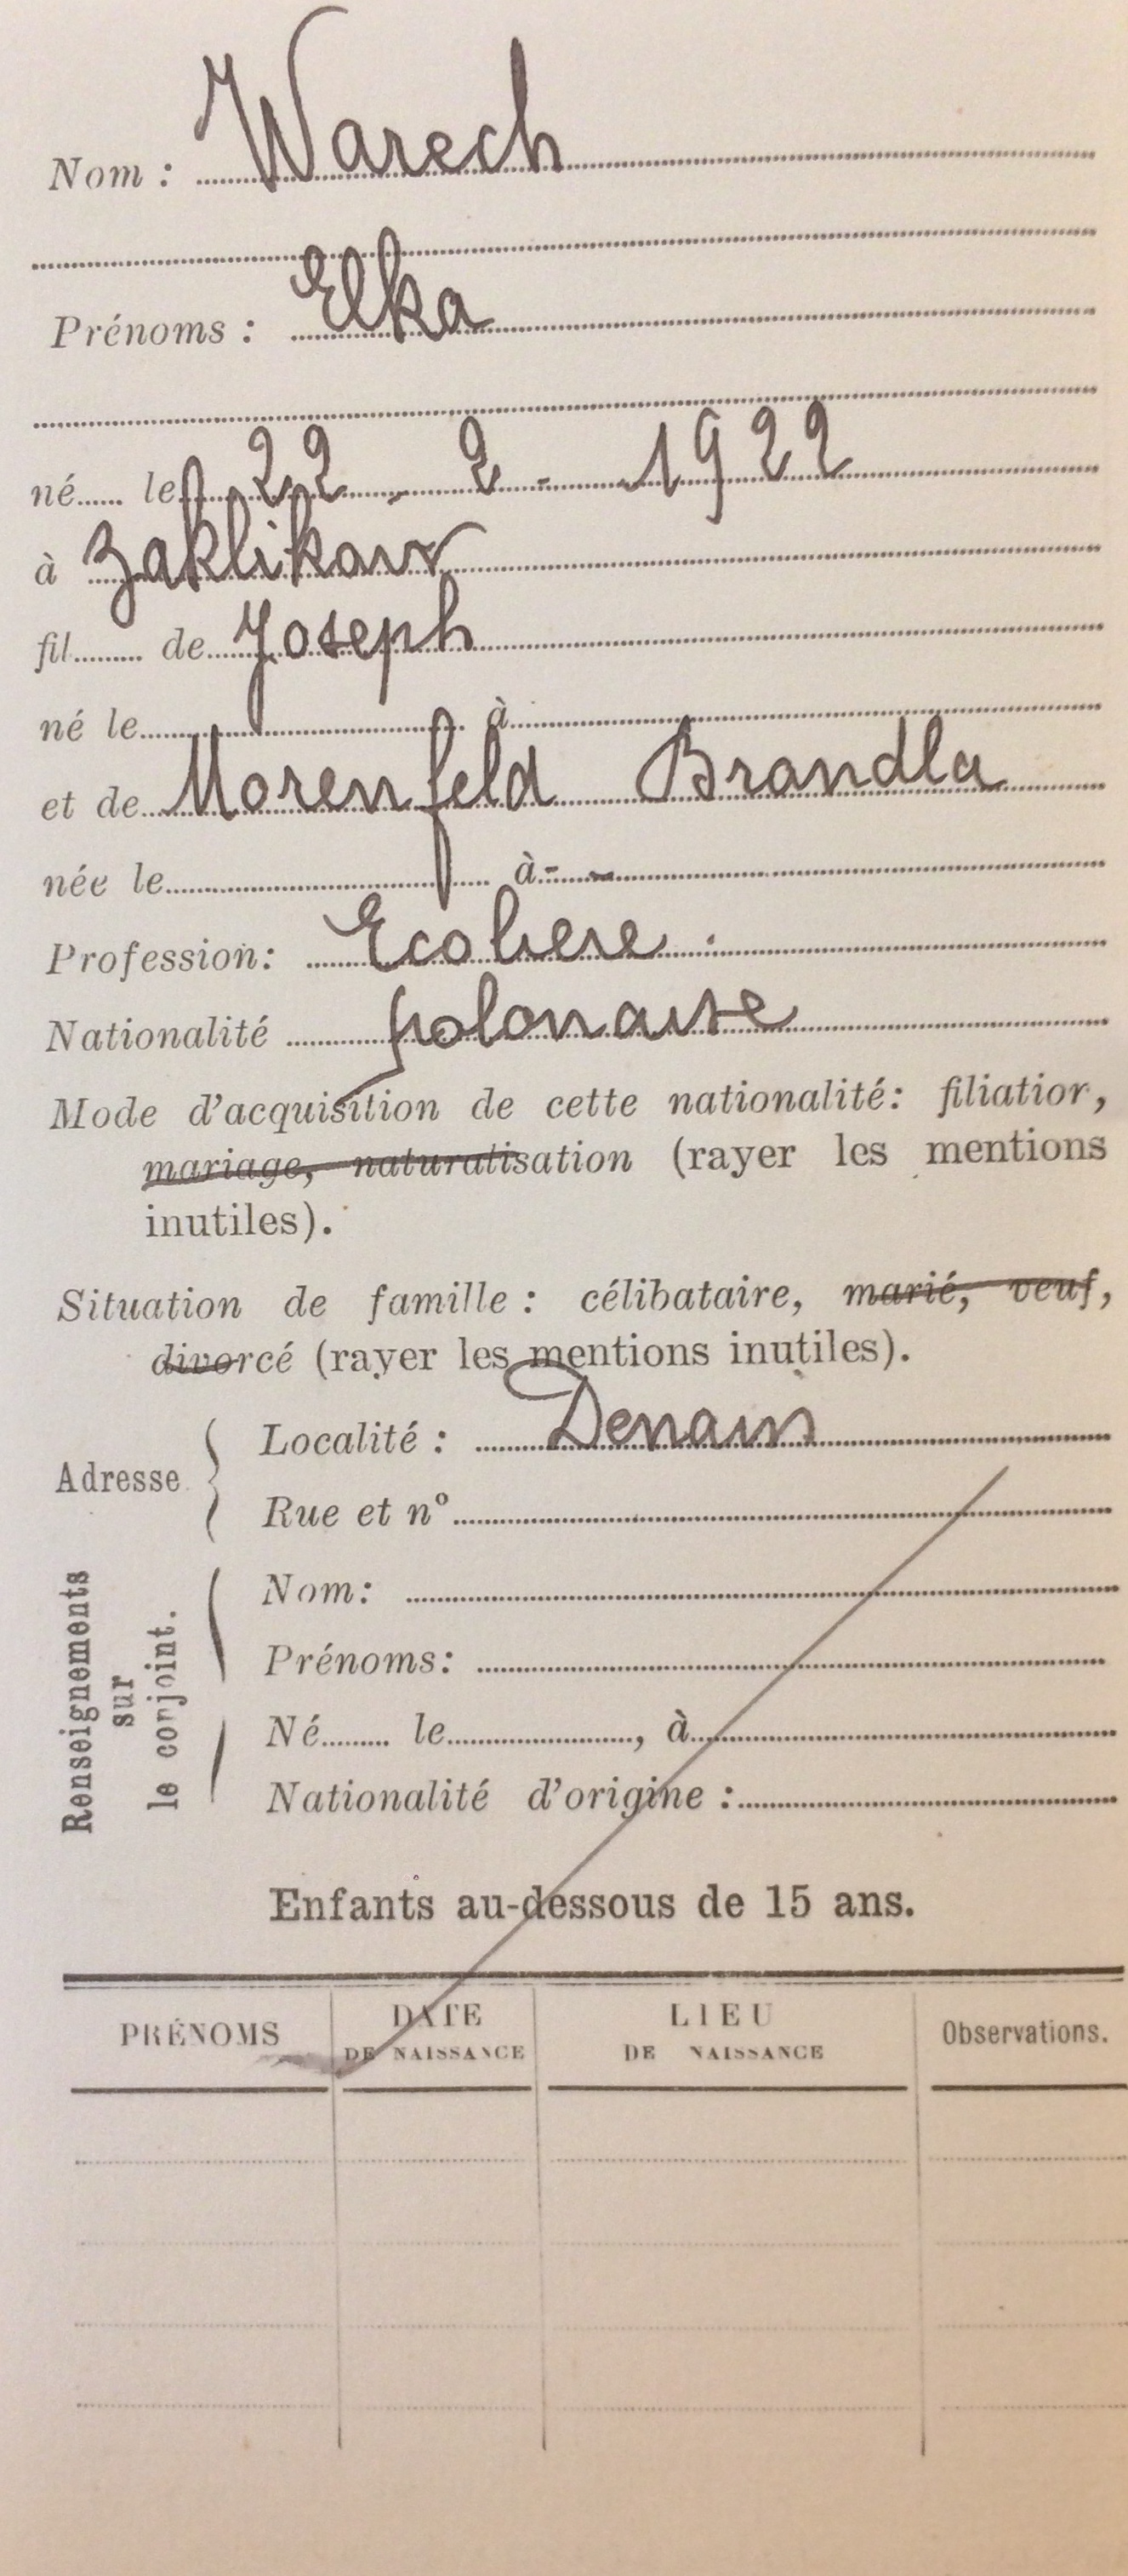 Nom : Warech
Prénoms : Elka
né...... le 22 - 2 - 1922
à Zaklikow
fil......... de Joseph
né le.................... à
et de Morenfeld Brandla
née le.................... à - -
Profession: Ecoliere
Nationalité polonaise
Mode d'acquisition de cette nationalité: filiation,
mariage, naturalisation (rayer les mentions
inutiles).
Situation de famille : célibataire, marié, veuf,
divorcé (rayer les mentions inutiles).
Adresse
Localité : Denain
Rue et n°
Renseignements
sur
le conjoint.
Nom:
Prénoms:
Né........ le...................., à
Nationalité d'origine :
Enfants au-dessous de 15 ans.
PRÉNOMS DATE LIEU Observations.
DE NAISSANCE DE NAISSANCE